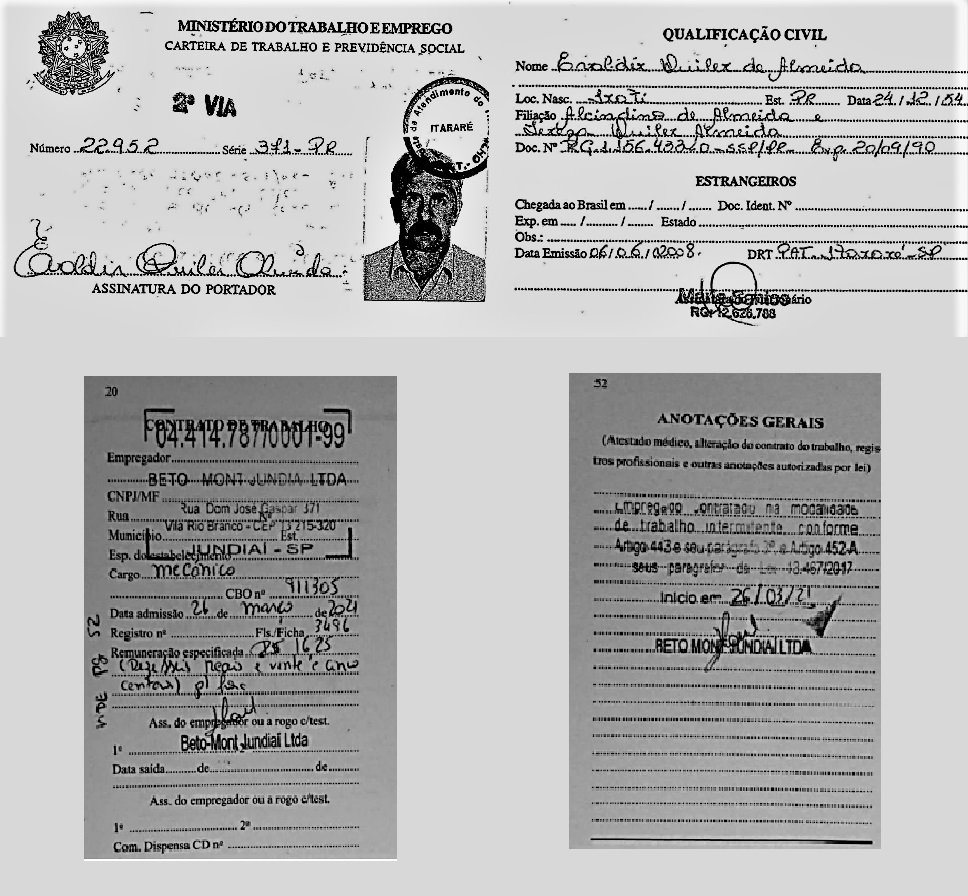 MINISTÉRIO DO TRABALHO E EMPREGO
CARTEIRA DE TRABALHO E PREVIDÊNCIA SOCIAL
2ª VIA
Atendimento do
ITARARÉ
Número 22952 Série 371-PR
ASSINATURA DO PORTADOR
QUALIFICAÇÃO CIVIL
Nome Quiler de Almeida
Loc. Nasc. Irati Est. PR Data 24/12/54
Filiação Alcindino de Almeida e
Tereza Quiler Almeida
Doc. Nº RG. 1.156.4332-0-SSP/PR Exp. 20/09/90
ESTRANGEIROS
Chegada ao Brasil em ...... / ...... / ...... Doc. Ident. Nº
Exp. em ...... / ...... / ...... Estado
Obs.:
Data Emissão 06/06/2008. DRT PAT. Itararé-SP
RG: 12.628.788
20
CONTRATO DE TRABALHO
04.414.787/0001-99
Empregador
BETO MONT JUNDIAI LTDA
CNPJ/MF
Rua Dom José Gaspar 371
Rua Nº
Vila Rio Branco - CEP 13 215-320
Município Est.
JUNDIAÍ - SP
Esp. do estabelecimento
Cargo mecânico
CBO nº 911305
Data admissão 26 de março de 2021
Registro nº Fls/Ficha 3496
Remuneração especificada R$ 16,25
(Dezesseis reais e vinte e cinco
centavos) p/ hora
Ass. do empregador ou a rogo c/test.
Beto-Mont Jundiaí Ltda
1º
Data saída de de
Ass. do empregador ou a rogo c/test.
1º 2º
Com. Dispensa CD nº
VIDE PG 52
52
ANOTAÇÕES GERAIS
(Atestado médico, alteração do contrato do trabalho, regis
tros profissionais e outras anotações autorizadas por lei)
Empregado contratado na modalidade
de trabalho intermitente conforme
Artigo 443 e seu parágrafo 3º e Artigo 452-A
seus parágrafos da Lei 13.467/2017
Início em 26/03/21
BETO MONT JUNDIAI LTDA